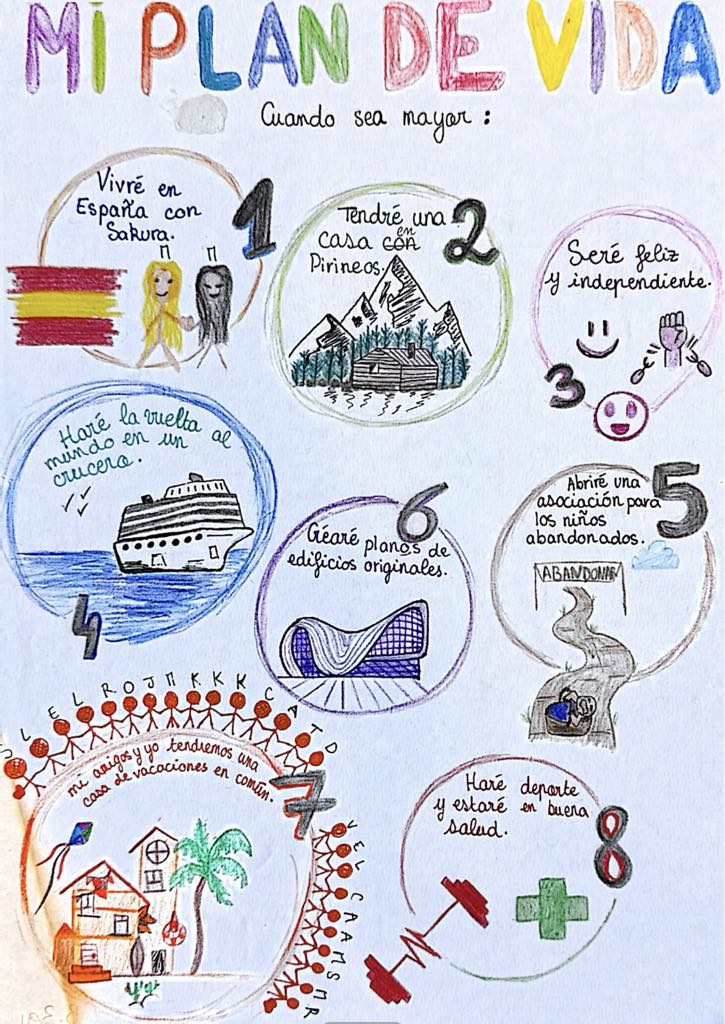 MI PLAN DE VIDA
Cuando sea mayor :
1
Vivré en
España con
Sakura.
2
Tendré una
casa con en
Pirineos.
3
Seré feliz
y independiente.
4
Haré la vuelta al
mundo en un
crucero.
5
Abriré una
asociación para
los niños
abandonados.
ABANDONAR
6
Créaré planos de
edificios originales.
7
mi amigos y yo tendremos una
casa de vacaciones en común.
L E L R O J M K K K C A T D
V E L C A A M S M R
8
Haré deporte
y estaré en buena
salud.